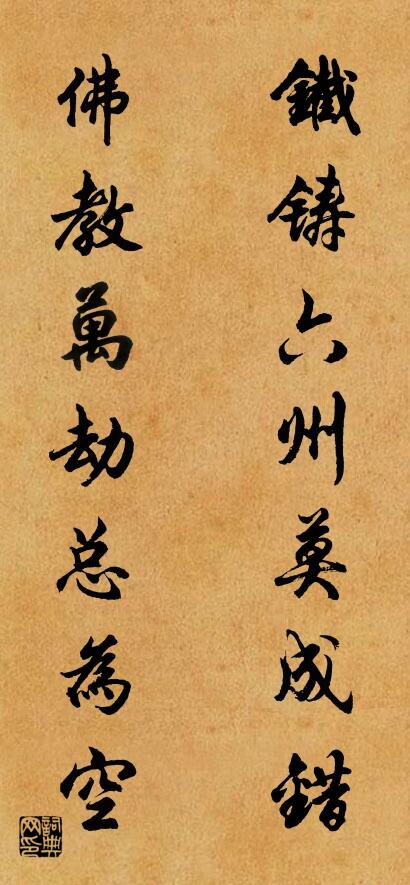 鐵鑄六州莫成錯
佛教萬劫总為空
詞典网印